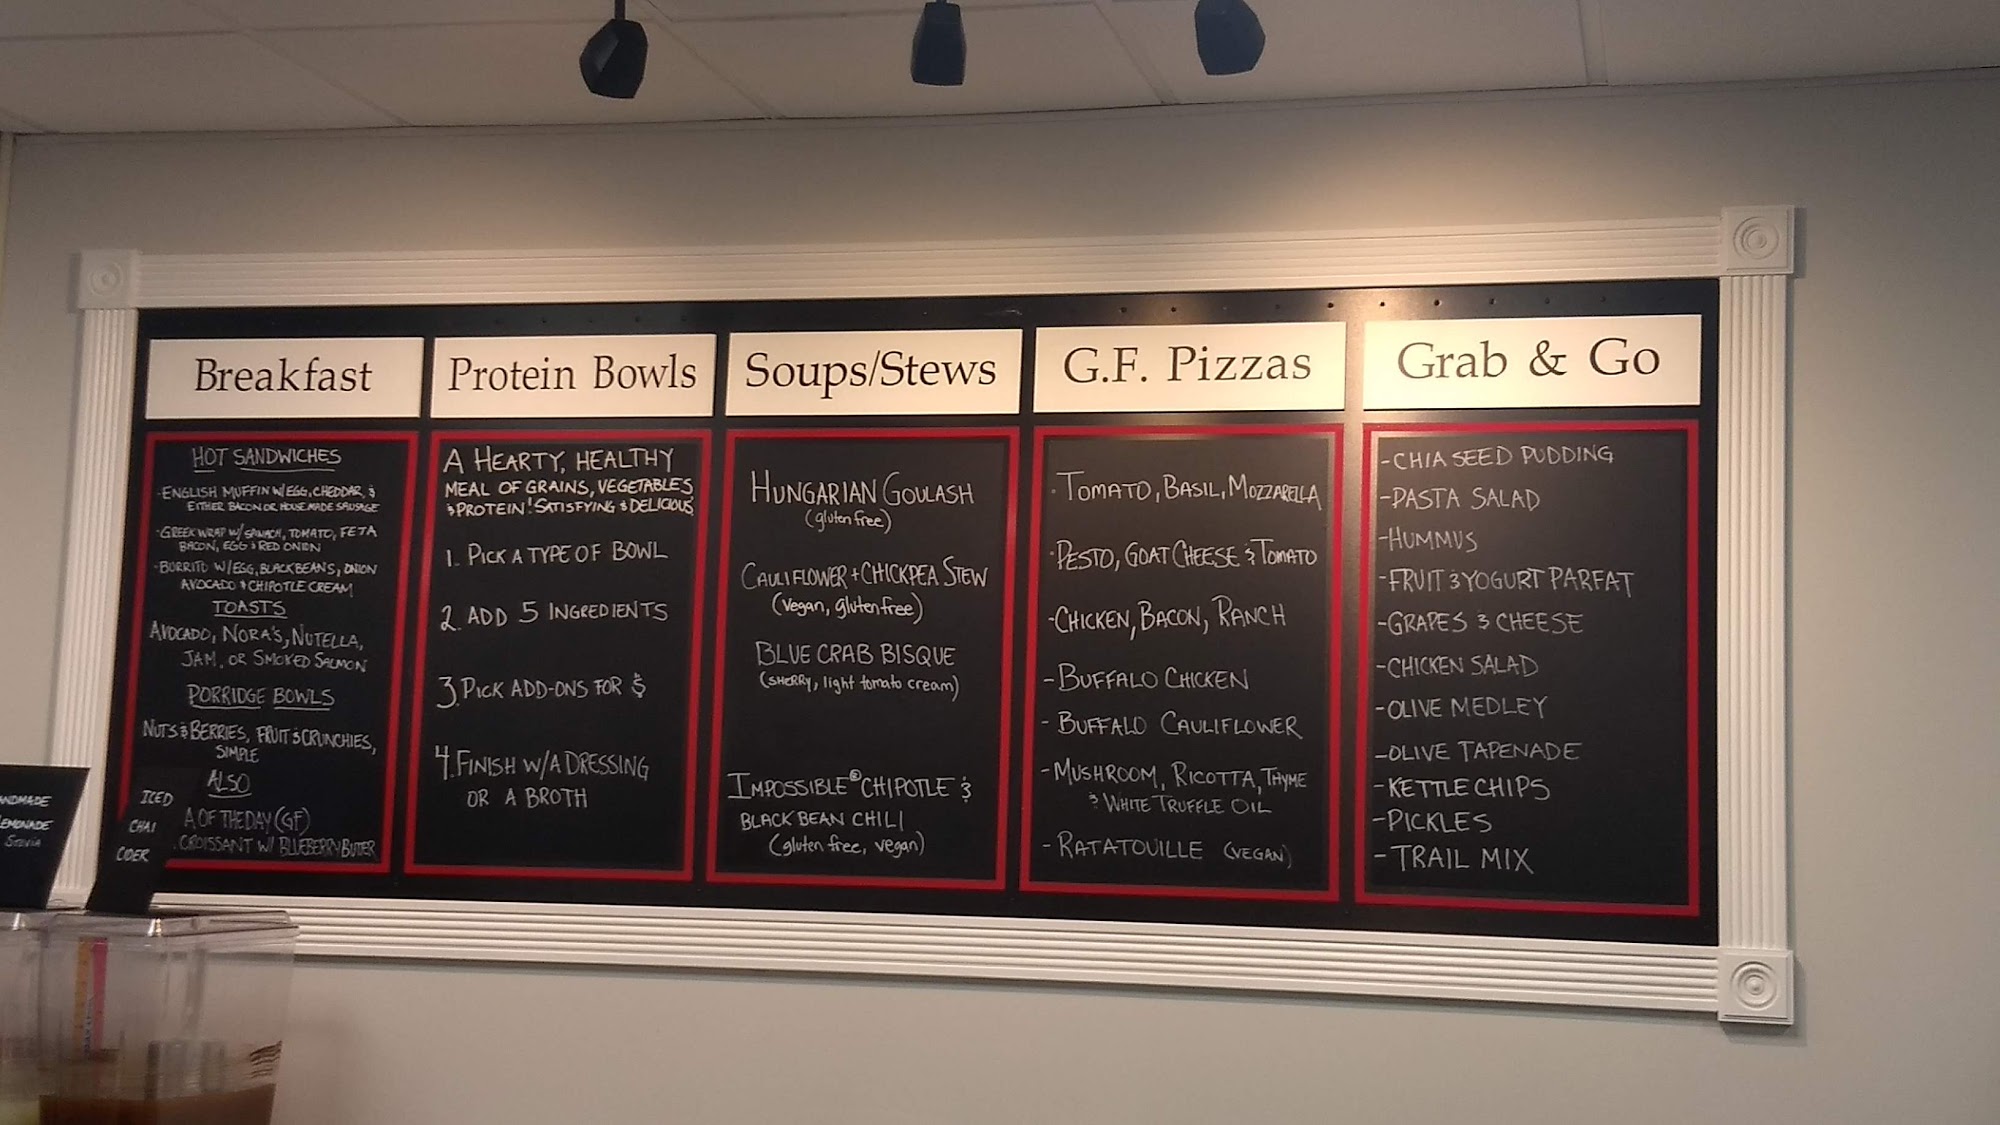 Breakfast
HOT SANDWICHES
-ENGLISH MUFFIN W/EGG, CHEDDAR, &
EITHER BACON OR HOUSEMADE SAUSAGE
-GREEK WRAP W/ SPINACH, TOMATO, FETA
BACON, EGG & RED ONION
-BURRITO W/EGG, BLACK BEANS, ONION
AVOCADO & CHIPOTLE CREAM
TOASTS
AVOCADO, NORA'S, NUTELLA,
JAM, OR SMOKED SALMON
PORRIDGE BOWLS
NUTS & BERRIES, FRUIT & CRUNCHIES,
SIMPLE
ALSO
A OF THE DAY (GF)
CROISSANT W/ BLUEBERRY BUTTER
Protein Bowls
A HEARTY, HEALTHY
MEAL OF GRAINS, VEGETABLES
& PROTEIN! SATISFYING & DELICIOUS
1. PICK A TYPE OF BOWL
2. ADD 5 INGREDIENTS
3. PICK ADD-ONS FOR $
4. FINISH W/A DRESSING
OR A BROTH
Soups/Stews
HUNGARIAN GOULASH
(gluten free)
CAULIFLOWER + CHICKPEA STEW
(vegan, gluten free)
BLUE CRAB BISQUE
(SHERRY, light tomato cream)
IMPOSSIBLE® CHIPOTLE &
BLACK BEAN CHILI
(gluten free, vegan)
G.F. Pizzas
-TOMATO, BASIL, MOZZARELLA
-PESTO, GOAT CHEESE & TOMATO
-CHICKEN, BACON, RANCH
-BUFFALO CHICKEN
-BUFFALO CAULIFLOWER
-MUSHROOM, RICOTTA, THYME
& WHITE TRUFFLE OIL
-RATATOUILLE (VEGAN)
Grab & Go
-CHIA SEED PUDDING
-PASTA SALAD
-HUMMUS
-FRUIT & YOGURT PARFAT
-GRAPES & CHEESE
-CHICKEN SALAD
-OLIVE MEDLEY
-OLIVE TAPENADE
-KETTLE CHIPS
-PICKLES
-TRAIL MIX
NDMADE
EMONADE
Stevia
ICED
CHAI
CIDER